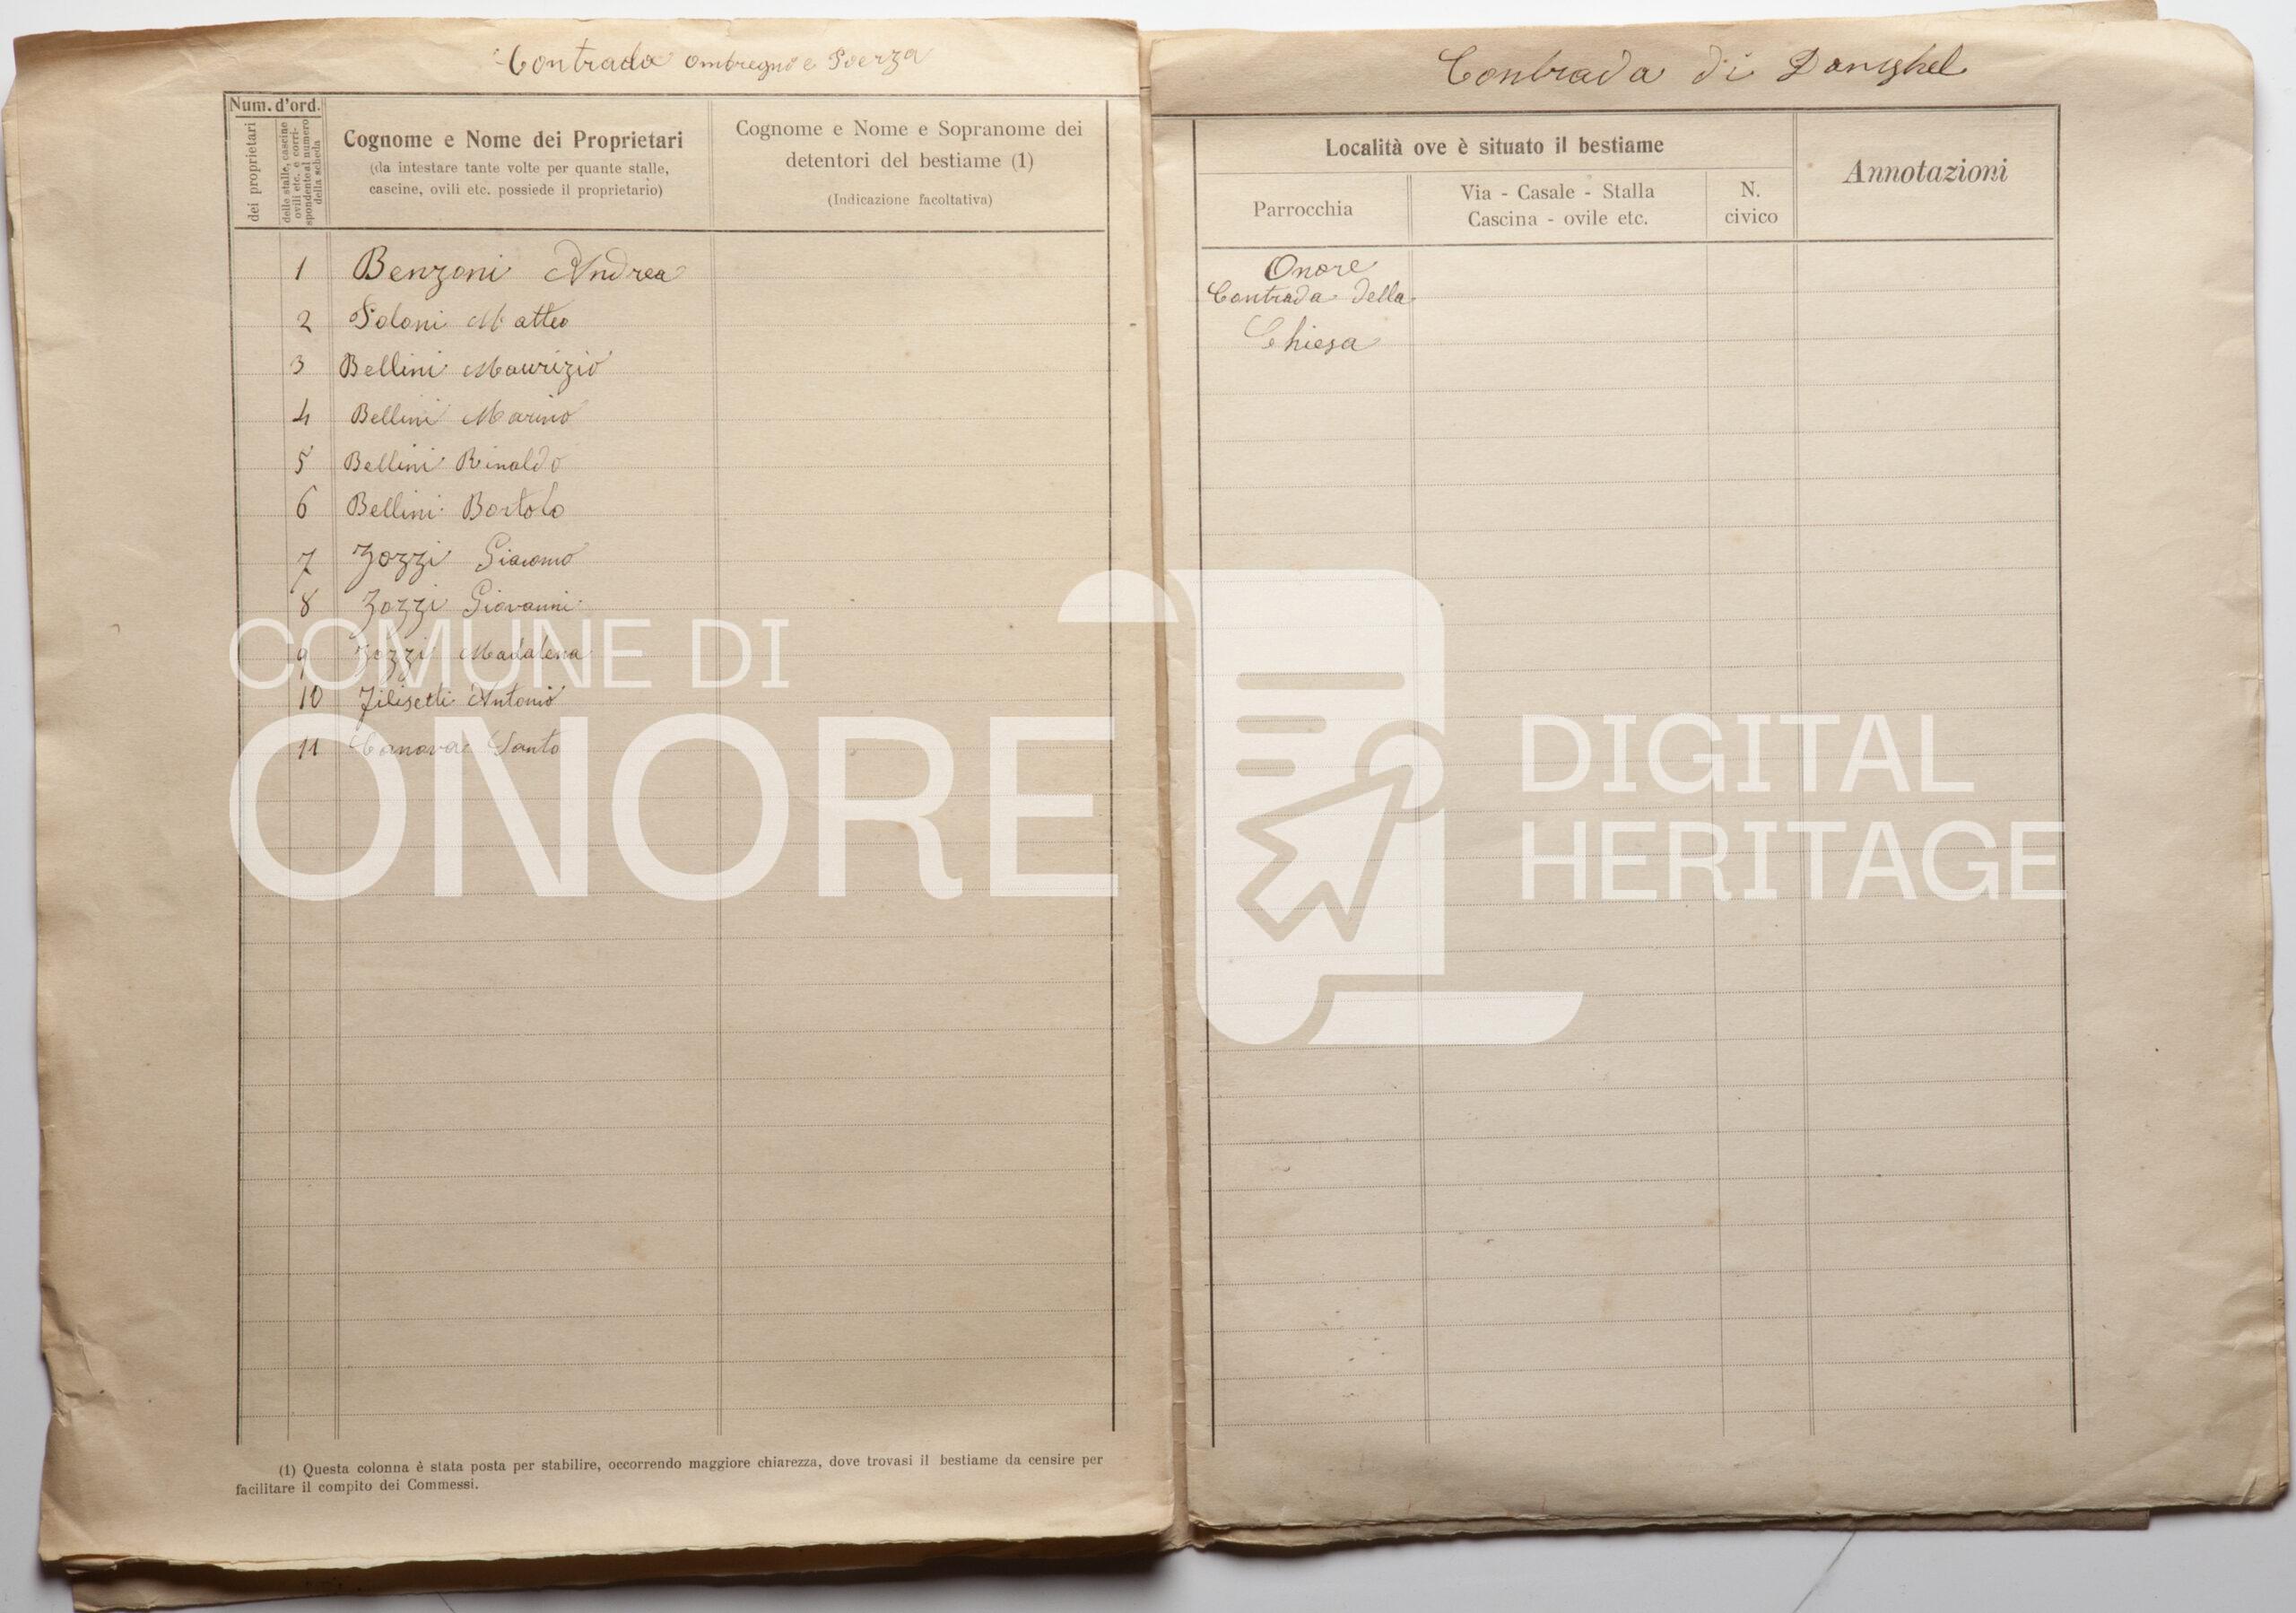 Contrada ombregno e Poerza
Num. d'ord.
dei proprietari
delle stalle, cascine
ovili etc. e corri-
spondente al numero
della scheda
Cognome e Nome dei Proprietari
(da intestare tante volte per quante stalle,
cascine, ovili etc. possiede il proprietario)
Cognome e Nome e Sopranome dei
detentori del bestiame (1)
(Indicazione facoltativa)
1 Benzoni Andrea
2 Poloni Matteo
3 Bellini Maurizio
4 Bellini Marino
5 Bellini Rinaldo
6 Bellini Bortolo
7 Zozzi Giacomo
8 Zozzi Giovanni
9 Zozzi Madalena
10 Filisetti Antonio
11 Canova Santo
(1) Questa colonna è stata posta per stabilire, occorrendo maggiore chiarezza, dove trovasi il bestiame da censire per
facilitare il compito dei Commessi.
Contrada di
Località ove è situato il bestiame
Annotazioni
Parrocchia
Via - Casale - Stalla
Cascina - ovile etc.
N.
civico
Onore
Contrada della
Chiesa
COMUNE DI
ONORE
DIGITAL
HERITAGE